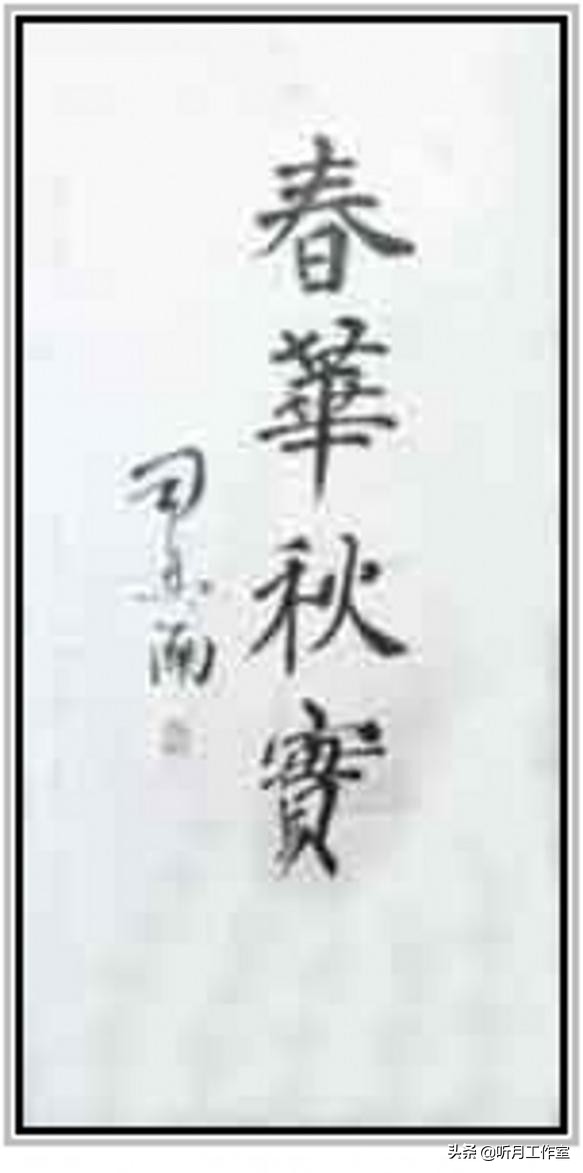 春華秋實
头条 @听月工作室